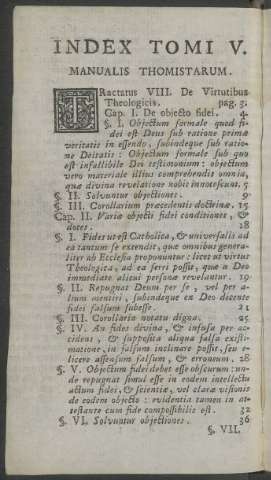 INDEX TOMI V.
MANUALIS THOMISTARUM.
TRactatus VIII. De Virtutibus
Theologicis. pag. 3.
Cap. I. De objecto fidei. 4.
§. I. Objectum formale quod fi-
dei est Deus sub ratione primæ
veritatis in essendo, subindeque sub ratio-
ne Deitatis: Objectum formale sub quo
est infallibile Dei testimonium: objectum
vero materiale illius comprehendit omnia,
quæ divina revelatione nobis innotescunt. 5.
§. II. Solvuntur objectiones. 9
§. III. Corollarium præcedentis doctrinæ. 15
Cap. II. Variæ objecti fidei conditiones, &
dotes. 18
§. I. Fides ut est Catholica, & universalis ad
ea tantum se extendit, quæ omnibus genera-
liter ab Ecclesia proponuntur: licet ut virtus
Theologica, ad ea ferri possit, quæ a Deo
immediate alicui personæ revelantur. 19
§. II. Repugnat Deum per se, vel per a-
lium mentiri, subindeque ex Deo docente
fidei falsum subesse. 21
§. III. Corollaria notatu digna. 25
§. IV. An fides divina, & infusa per ac-
cidens, & supposita aliqua falsa existi-
matione, in falsum inclinare possit, seu e-
licere assensum falsum, & erroneum. 28
§. V. Objectum fidei debet esse obscurum: un-
de repugnat simul esse in eodem intellectu
actum fidei, & scientiæ, vel claræ visionis
de eodem objecto: evidentia tamen in at-
testante cum fide compossibilis est. 32
§. VI. Solvuntur objectiones. 36
§. VII.